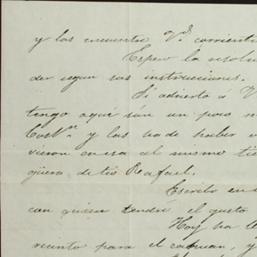 y los encuentre Vd. corriente
Espero la resolu
der segun sus instrucciones.
Le advierto á V
tengo aquí son un poco m
y las ha de haber
vieron en esa el mismo tie
guera, de tio Rafael.
Escribo en
con quien tendré el gusto
Hoy ha
cento para el y